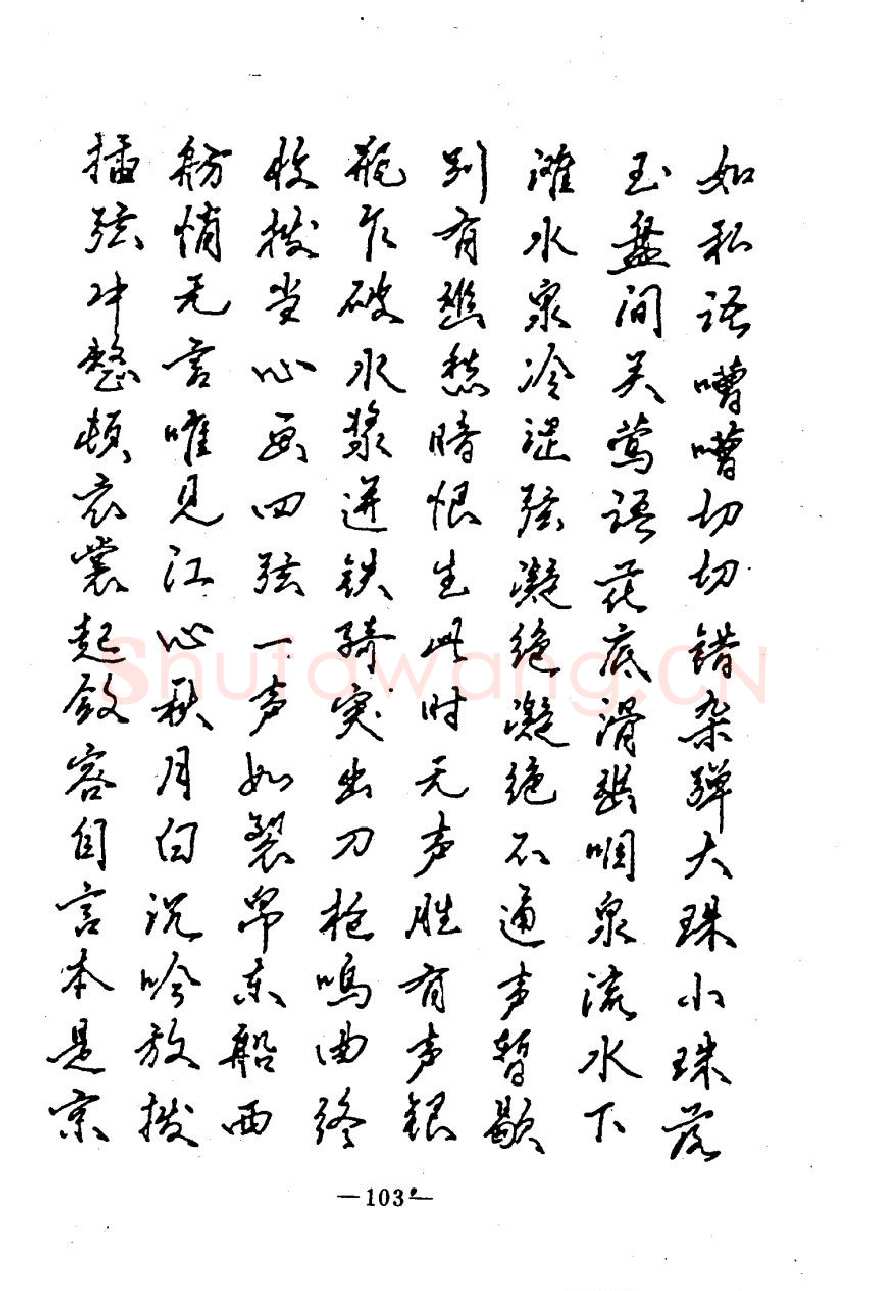 如私语嘈嘈切切错杂弹大珠小珠落
玉盘间关莺语花底滑幽咽泉流水下
滩水泉冷涩弦凝绝凝绝不通声暂歇
别有幽愁暗恨生此时无声胜有声银
瓶乍破水浆迸铁骑突出刀枪鸣曲终
收拨当心画四弦一声如裂帛东船西
舫悄无言唯见江心秋月白沉吟放拨
插弦冲整顿衣裳起敛容自言本是京
Shufawang.CN
—103—